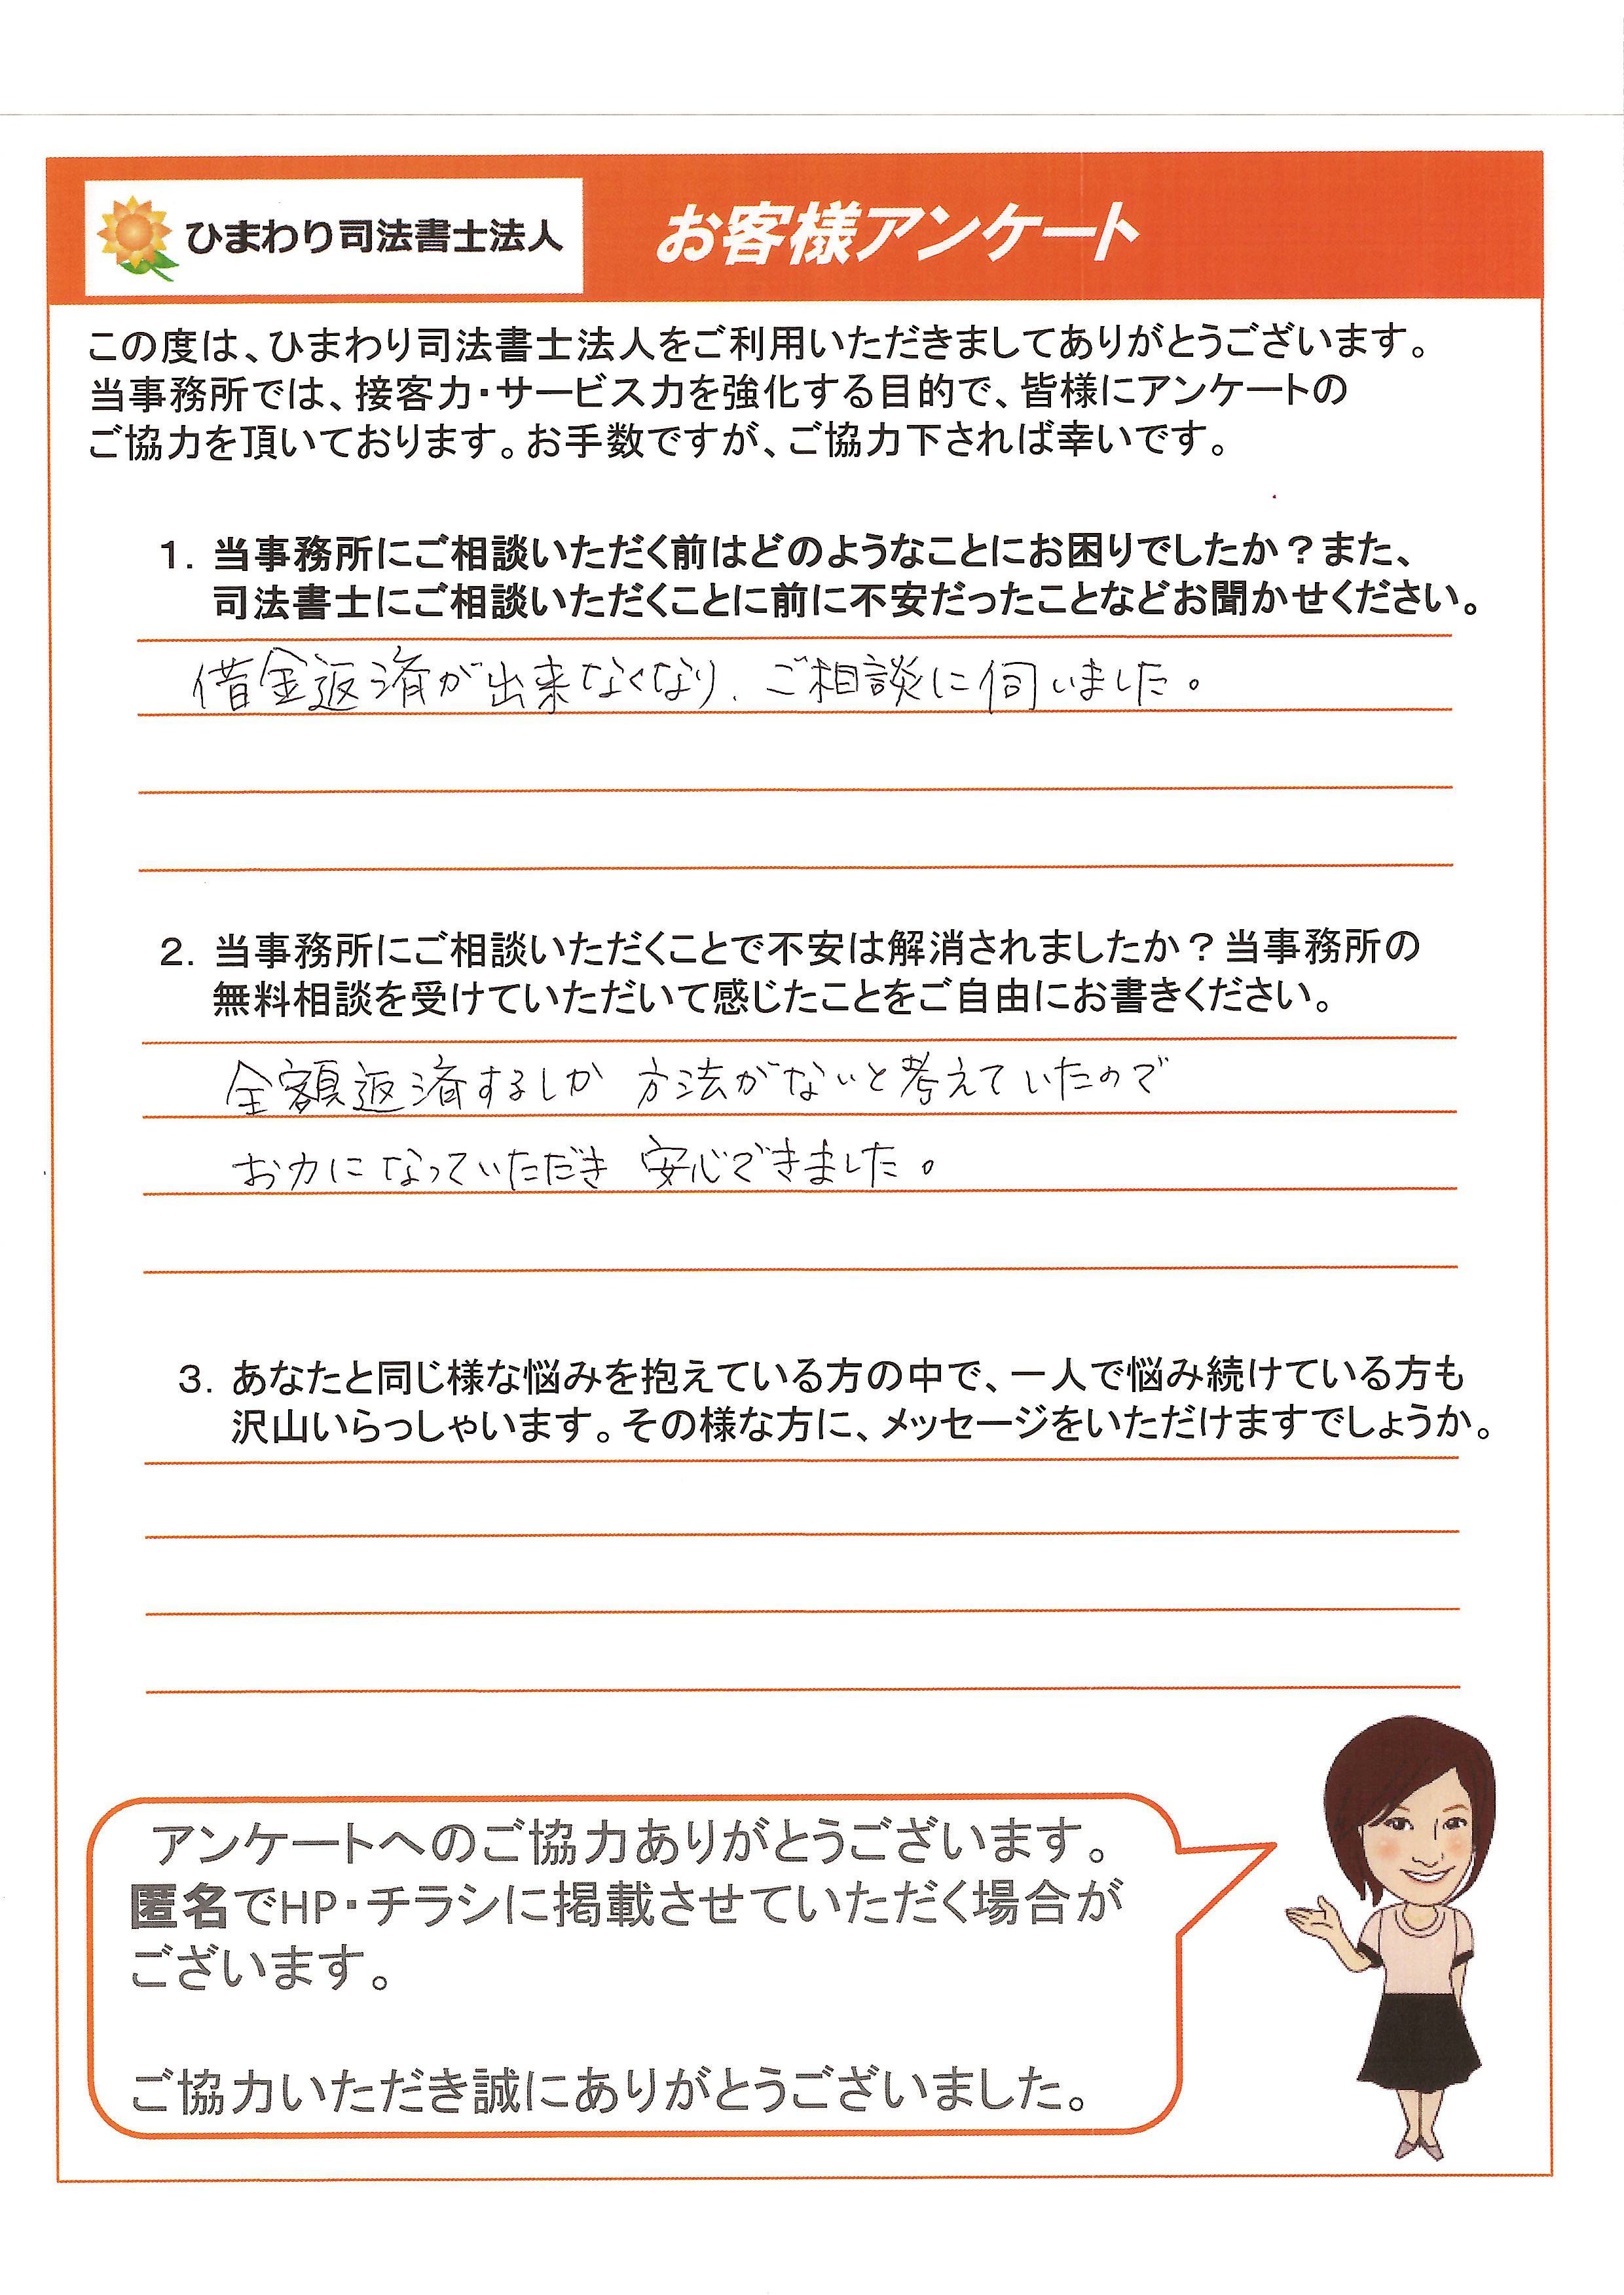 ひまわり司法書士法人
お客様アンケート
この度は、ひまわり司法書士法人をご利用いただきましてありがとうございます。
当事務所では、接客力・サービス力を強化する目的で、皆様にアンケートの
ご協力を頂いております。お手数ですが、ご協力下されば幸いです。
1. 当事務所にご相談いただく前はどのようなことにお困りでしたか？また、
司法書士にご相談いただくことに前に不安だったことなどお聞かせください。
借金返済が出来なくなり、ご相談に伺いました。
2. 当事務所にご相談いただくことで不安は解消されましたか？当事務所の
無料相談を受けていただいて感じたことをご自由にお書きください。
全額返済するしか 方法がないと考えていたので
お力になっていただき 安心できました。
3. あなたと同じ様な悩みを抱えている方の中で、一人で悩み続けている方も
沢山いらっしゃいます。その様な方に、メッセージをいただけますでしょうか。
アンケートへのご協力ありがとうございます。
匿名でHP・チラシに掲載させていただく場合が
ございます。
ご協力いただき誠にありがとうございました。